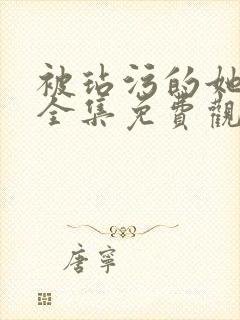 被玷污的她
全集免費觀
唐寧